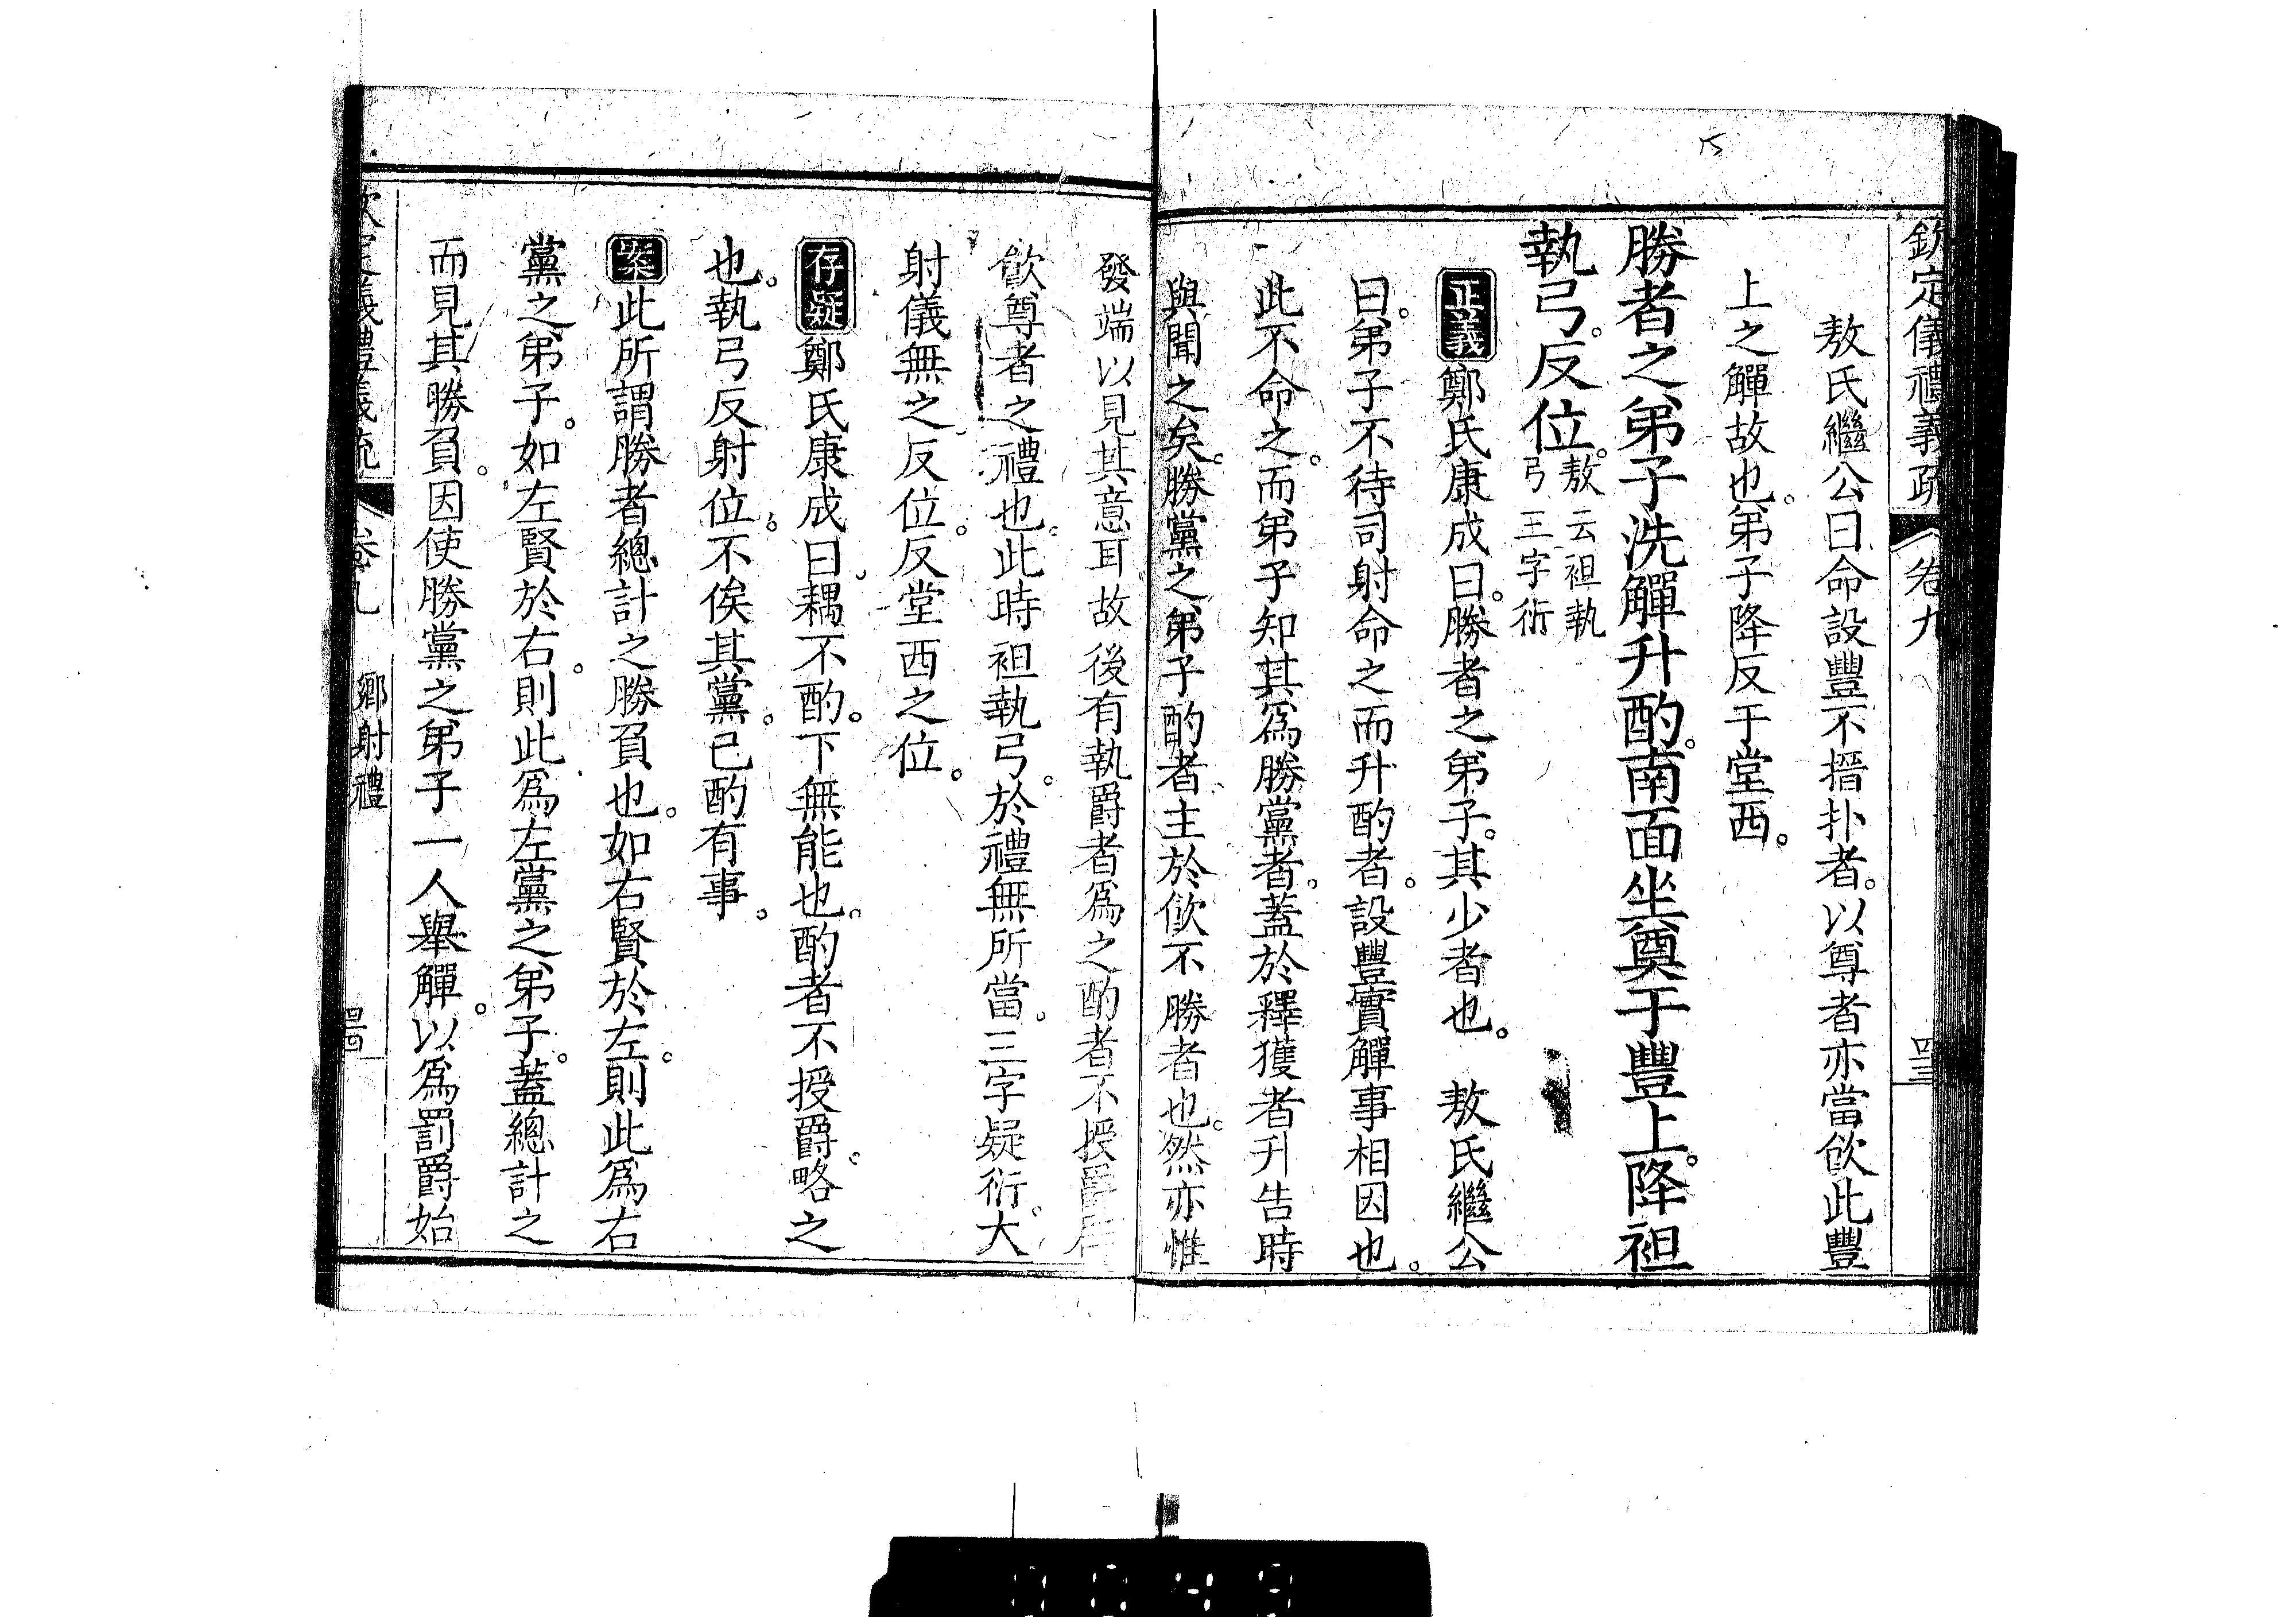 欽定儀禮義疏 卷九
敖氏繼公曰命設豐不搢扑者。以尊者亦當飲此豐
上之觶故也。弟子降反于堂西。
勝者之弟子洗觶升酌。南面坐奠于豐上。降袒
執弓。反位。敖云袒執
弓三字衍
正義鄭氏康成曰。勝者之弟子。其少者也。 敖氏繼公
曰。弟子不待司射命之而升酌者。設豐實觶事相因也。
此不命之。而弟子知其爲勝黨者。蓋於釋獲者升告時
與聞之矣。勝黨之弟子酌者主於飲不勝者也。然亦惟
發端以見其意耳故後有執爵者爲之酌者不授爵
飲尊者之禮也。此時袒執弓。於禮無所當。三字疑衍。大
射儀無之。反位。反堂西之位。
存疑鄭氏康成曰。耦不酌。下無能也。酌者不授爵。略之
也。執弓反射位。不俟其黨。已酌有事。
案此所謂勝者總計之勝負也。如右賢於左。則此爲右
黨之弟子。如左賢於右。則此爲左黨之弟子。蓋總計之
而見其勝負。因使勝黨之弟子一人舉觶。以爲罰爵始
鄉射禮